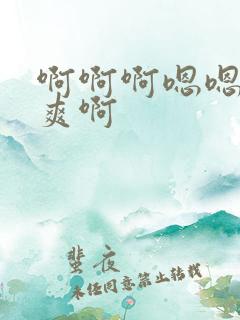 啊啊啊嗯嗯
爽啊
蜚夜
未经同意禁止转载